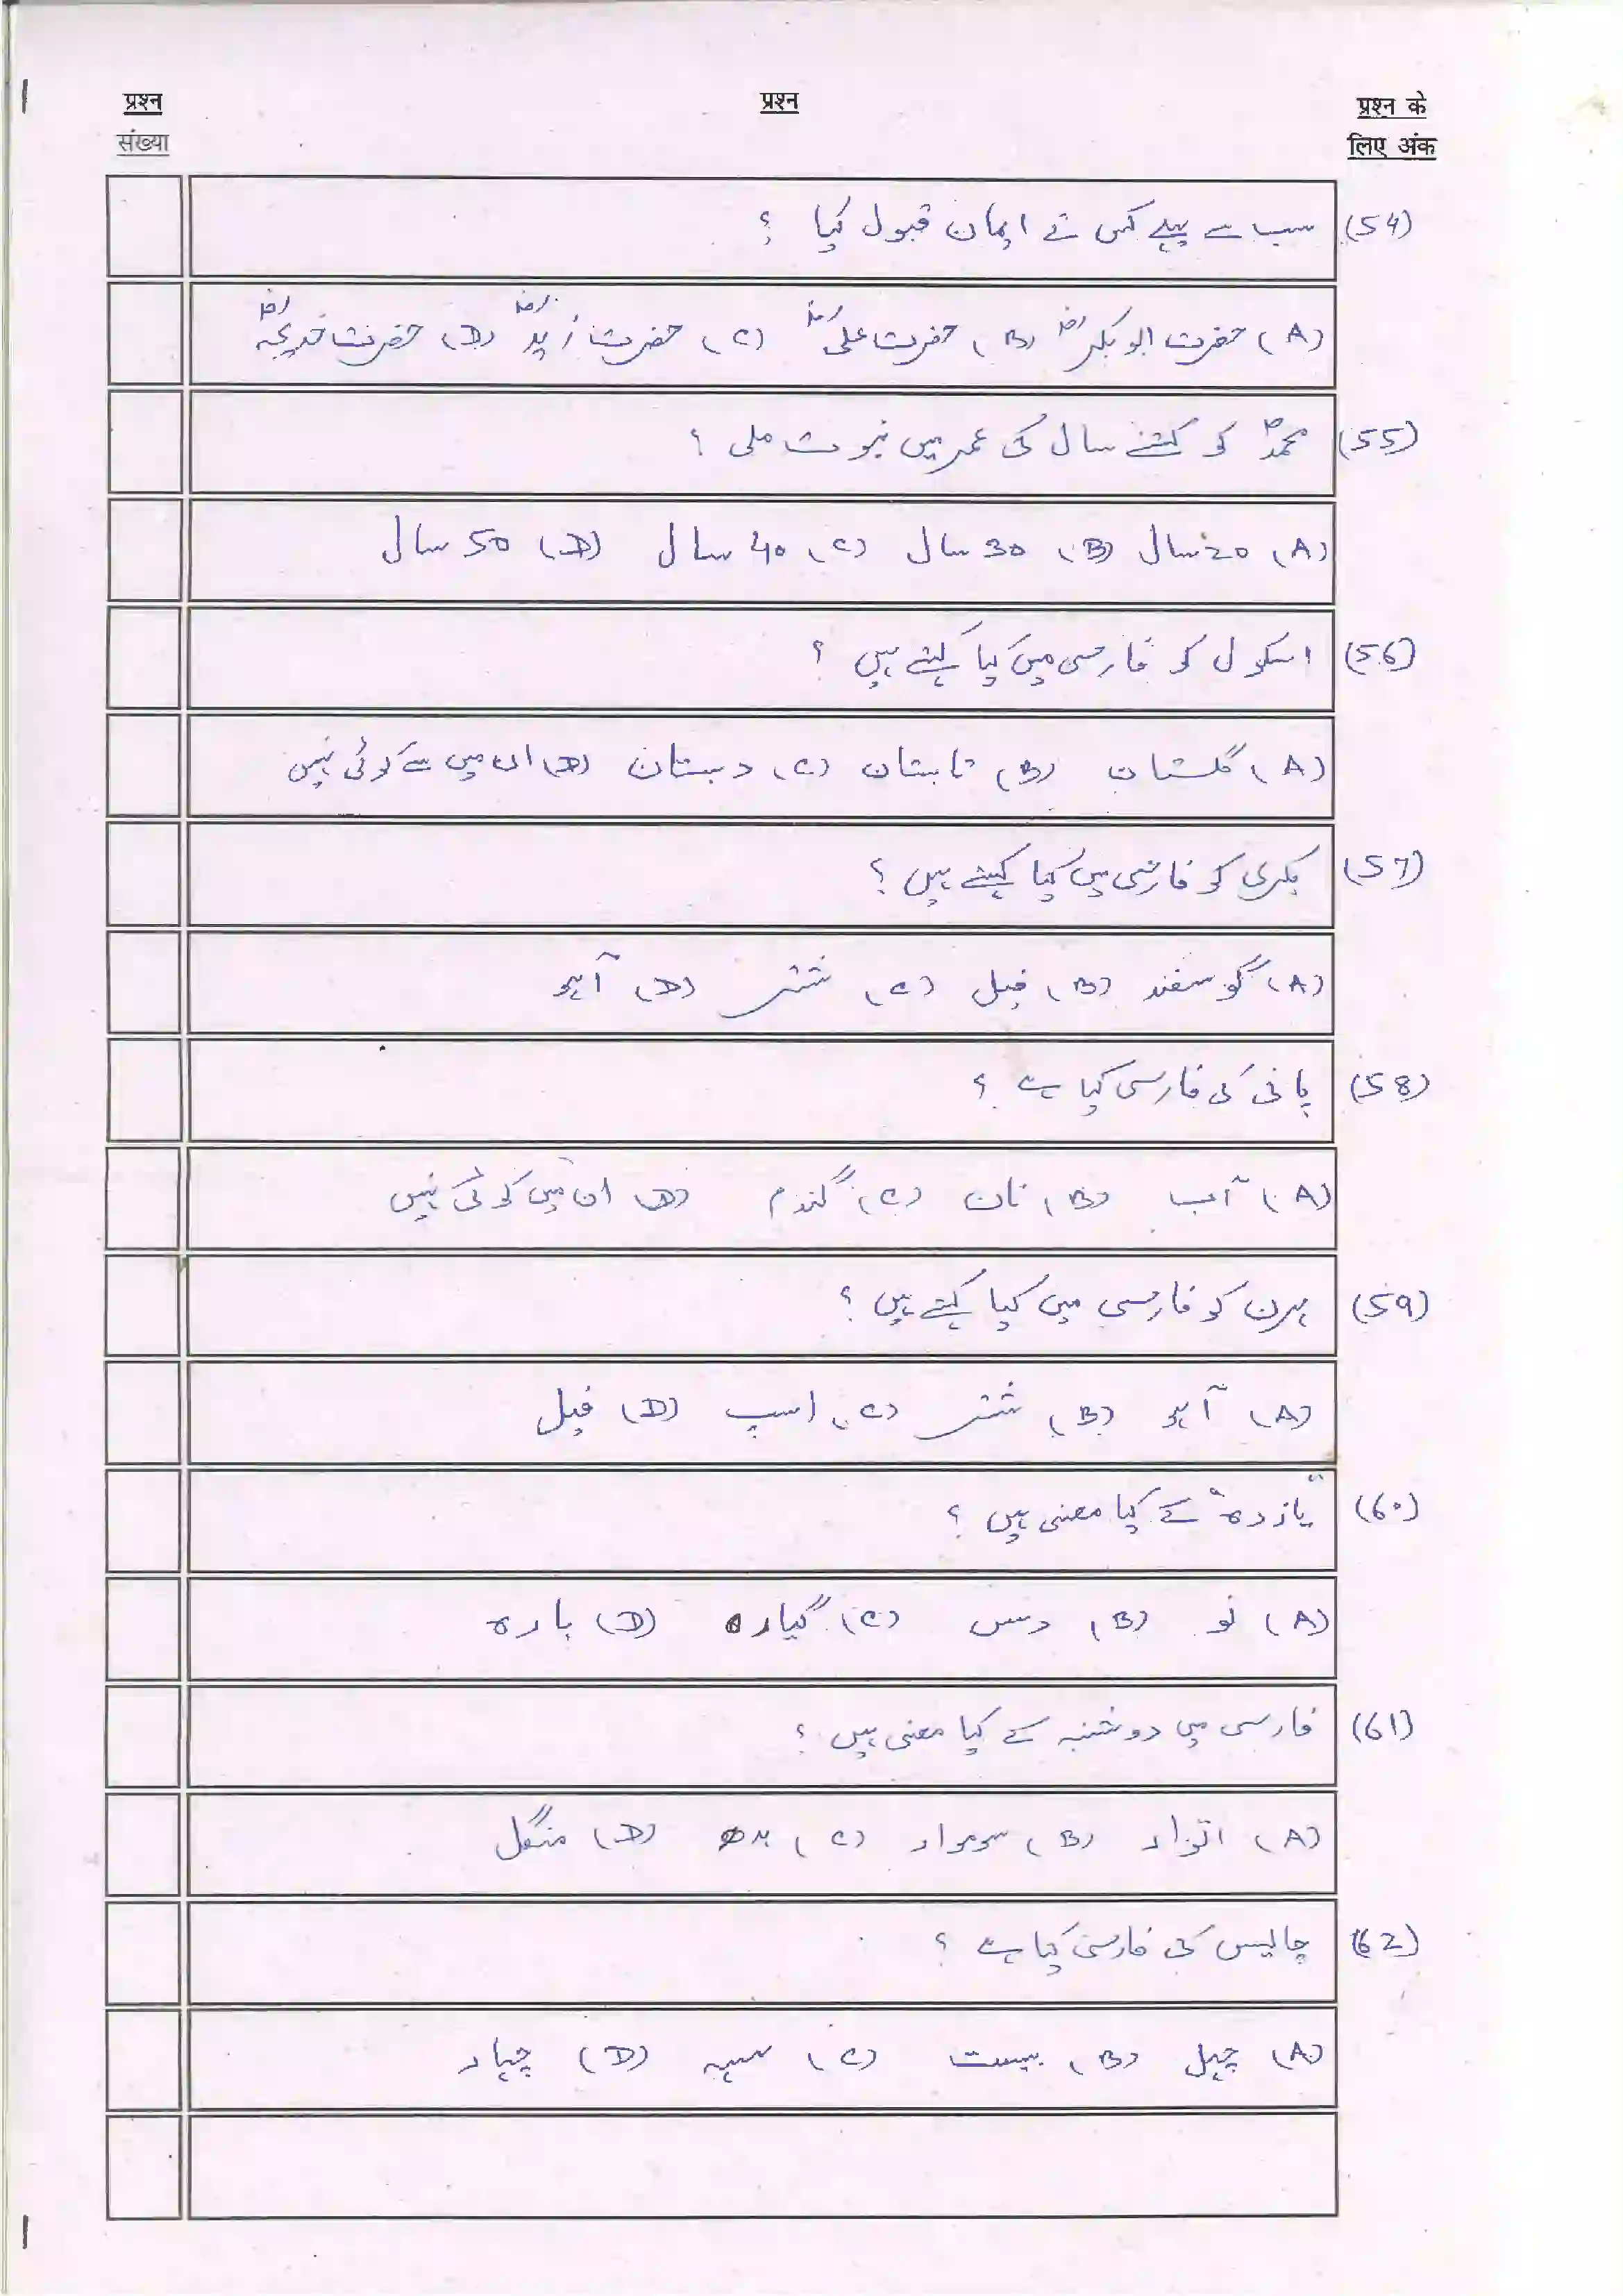 प्रश्न संख्या
प्रश्न
प्रश्न के लिए अंक
(54) سب سے پہلے کس نے ایمان قبول کیا ؟
(A) حضرت ابو بکرؓ (B) حضرت علیؓ (C) حضرت زیدؓ (D) حضرت خدیجہؓ
(55) محمدؐ کو کتنے سال کی عمر میں نبوت ملی ؟
(A) 20 سال (B) 30 سال (C) 40 سال (D) 50 سال
(56) اسکول کو فارسی میں کیا کہتے ہیں ؟
(A) گلستان (B) تابستان (C) دبستان (D) ان میں سے کوئی نہیں
(57) بکری کو فارسی میں کیا کہتے ہیں ؟
(A) گوسفند (B) فیل (C) شتر (D) آہو
(58) پانی کی فارسی کیا ہے ؟
(A) آب (B) نان (C) گندم (D) ان میں کوئی نہیں
(59) ہرن کو فارسی میں کیا کہتے ہیں ؟
(A) آہو (B) شتر (C) اسپ (D) فیل
(60) "یازدہ" کے کیا معنی ہیں ؟
(A) نو (B) دس (C) گیارہ (D) بارہ
(61) فارسی میں دوشنبہ کے کیا معنی ہیں ؟
(A) اتوار (B) سوموار (C) بدھ (D) منگل
(62) چالیس کی فارسی کیا ہے ؟
(A) چہل (B) بیست (C) سہ (D) چہار